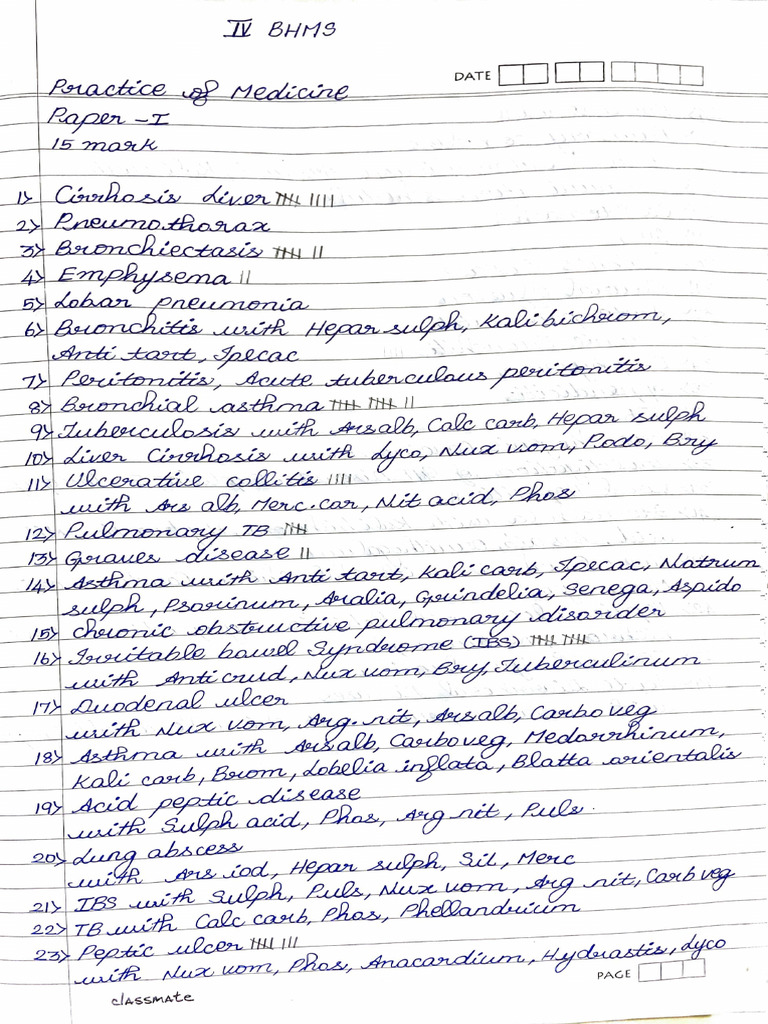 IV BHMS
DATE
Practice of Medicine
Paper - I
15 mark
1) Cirrhosis Liver 卌 ||||
2) Pneumothorax
3) Bronchiectasis 卌 ||
4) Emphysema ||
5) Lobar pneumonia
6) Bronchitis with Hepar sulph, Kali bichrom,
Anti tart, Ipecac
7) Peritonitis, Acute tuberculous peritonitis
8) Bronchial asthma 卌 卌 ||
9) Tuberculosis with Ars alb, Calc carb, Hepar sulph
10) Liver Cirrhosis with Lyco, Nux vom, Podo, Bry
11) Ulcerative collitis ||||
with Ars alb, Merc.cor, Nit acid, Phos
12) Pulmonary TB 卌
13) Graves disease ||
14) Asthma with Anti tart, Kali carb, Ipecac, Natrum
sulph, Psorinum, Aralia, Grindelia, Senega, Aspido
15) Chronic obstructive pulmonary disorder
16) Irritable bowel Syndrome (IBS) 卌 卌
with Anti crud, Nux vom, Bry, Tuberculinum
17) Duodenal ulcer
with Nux vom, Arg. nit, Ars alb, Carbo veg
18) Asthma with Ars alb, Carbo veg, Medorrhinum,
Kali carb, Brom, Lobelia inflata, Blatta orientalis
19) Acid peptic disease
with Sulph acid, Phos, Arg nit, Puls.
20) Lung abscess
with Ars iod, Hepar sulph, Sil, Merc
21) IBS with Sulph, Puls, Nux vom, Arg nit, Carb veg
22) TB with Calc carb, Phos, Phellandrium
23) Peptic ulcer 卌 |||
with Nux vom, Phos, Anacardium, Hydrastis, Lyco
PAGE
classmate